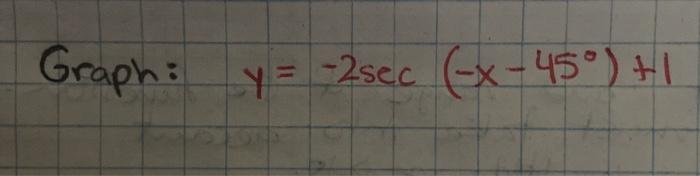 Graph: y = -2sec (-x - 45°) + 1